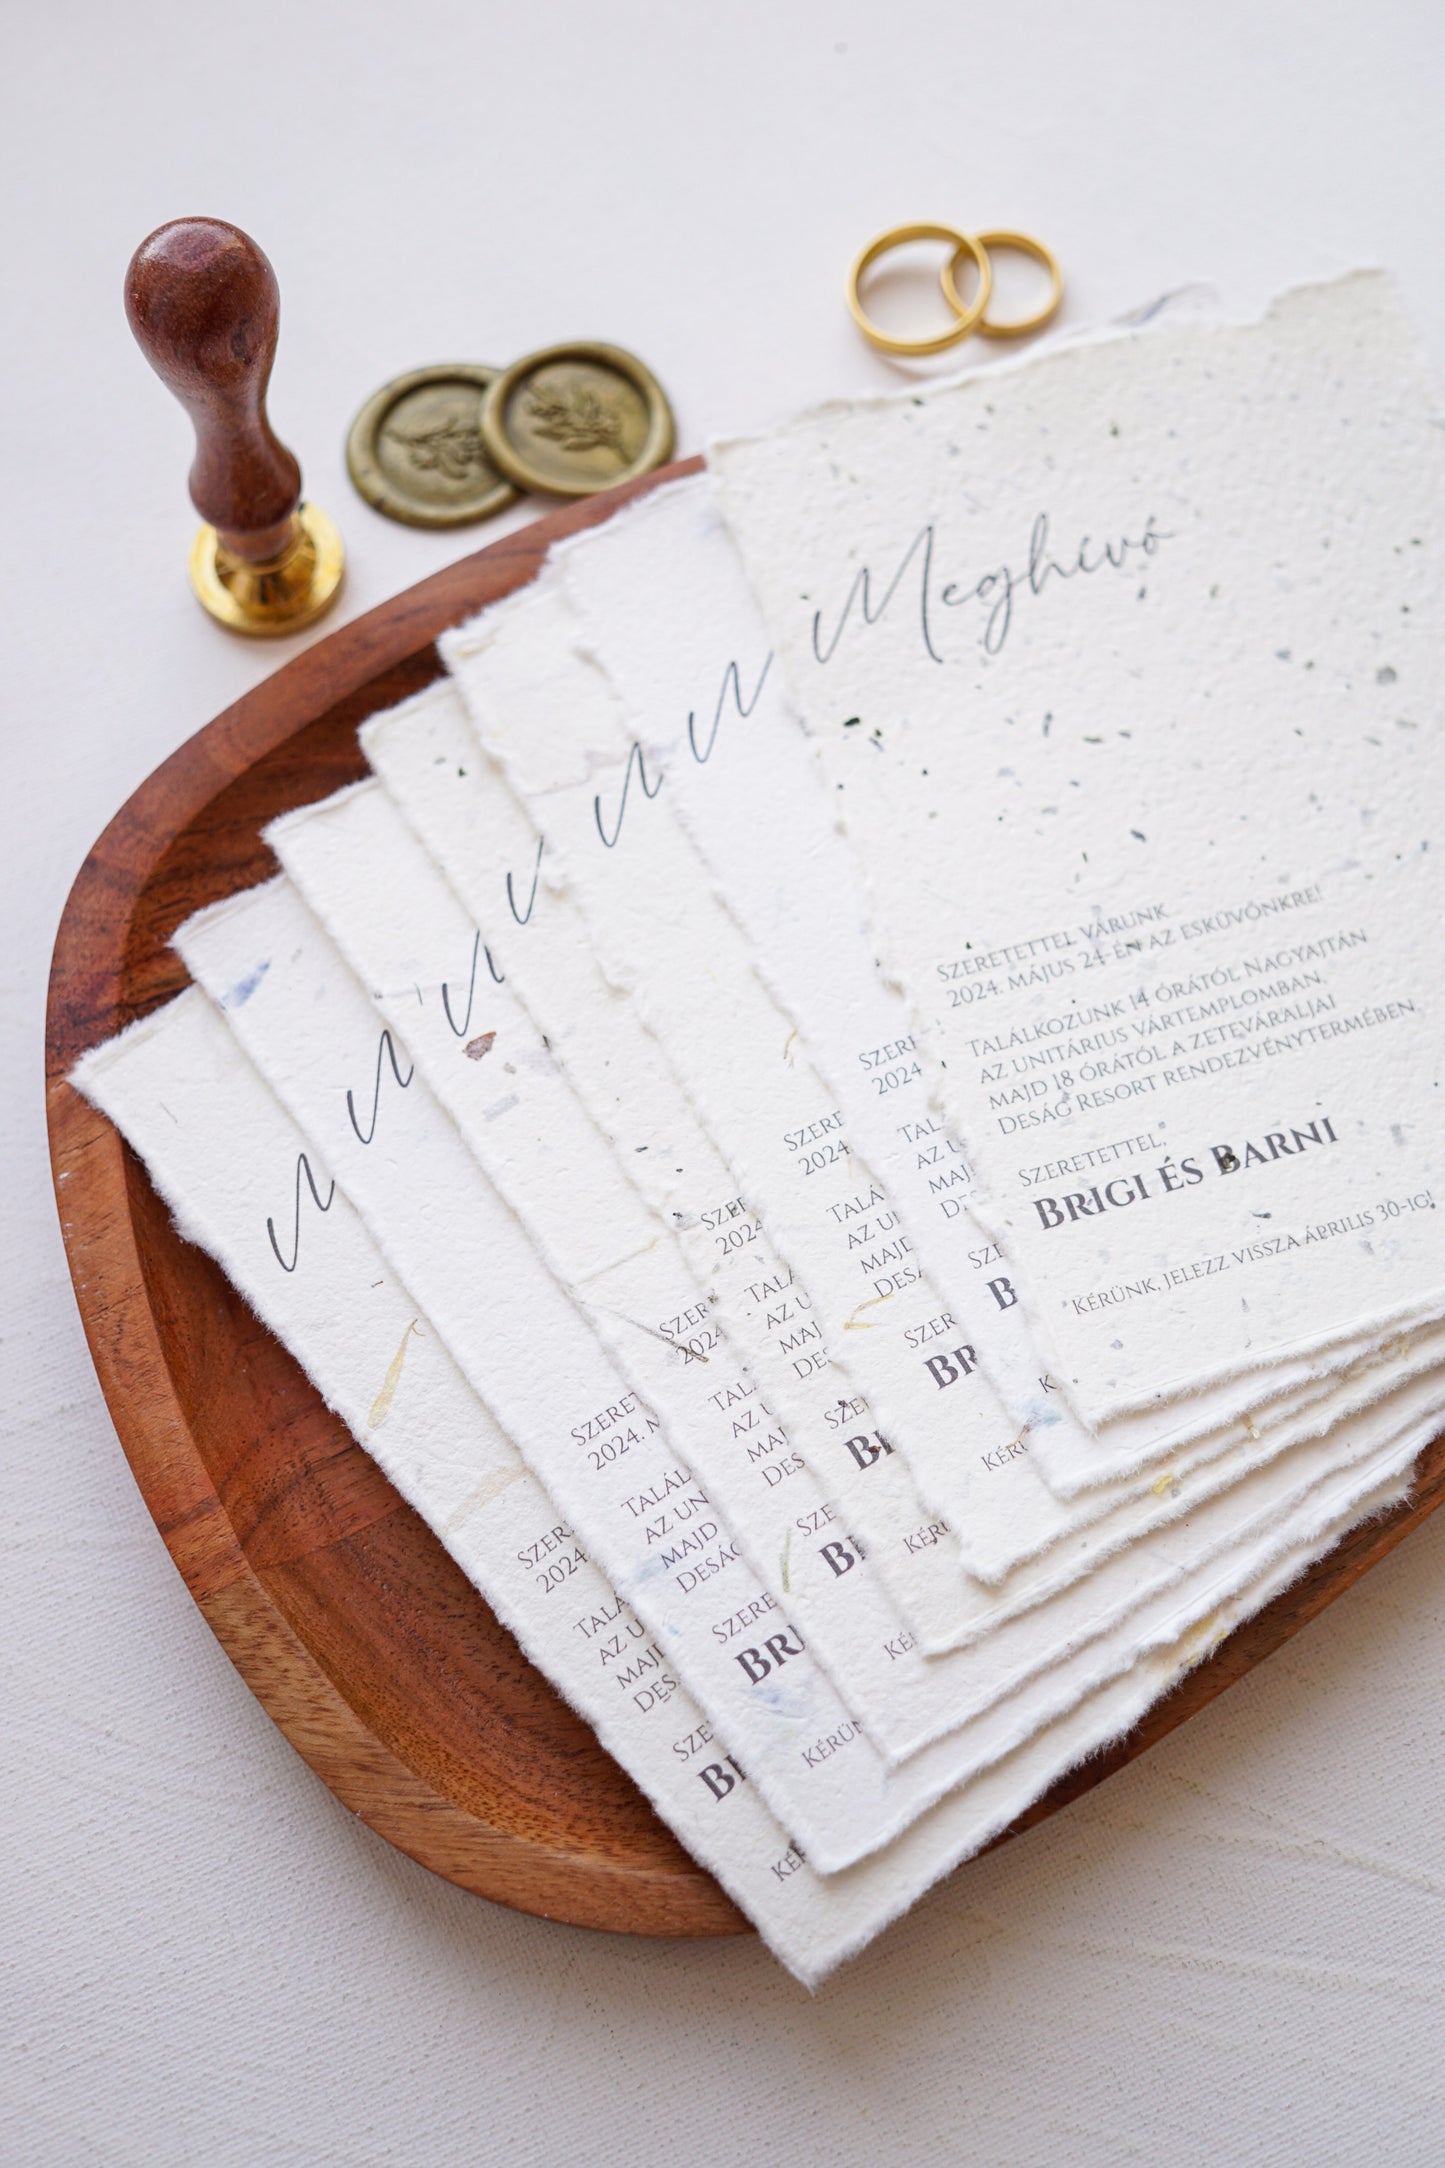 Meghívó
Szeretettel várunk
2024. május 24-én az esküvőnkre!
Találkozunk 14 órától Nagyajtán
az unitárius vártemplomban,
majd 18 órától a Zeteváraljai
Deság Resort rendezvénytermében.
Szeretettel,
Brigi és Barni
Kérünk, jelezz vissza április 30-ig!